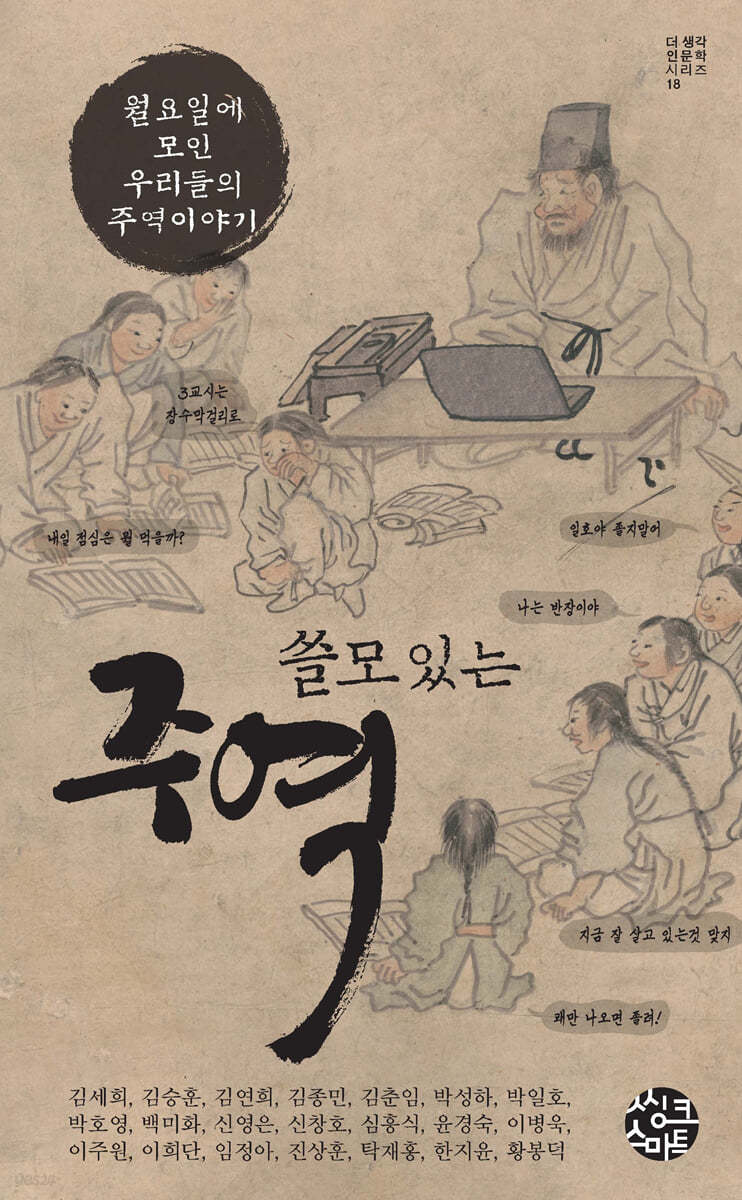 더 생각
인문학
시리즈
18
월요일에
모인
우리들의
주역이야기
3교시는
장수막걸리로
내일 점심은 뭘 먹을까?
일호야 졸지말어
나는 반장이야
쓸모 있는
주역
지금 잘 살고 있는것 맞지
괘만 나오면 졸려!
김세희, 김승훈, 김연희, 김종민, 김춘임, 박성하, 박일호,
박호영, 백미화, 신영은, 신창호, 심흥식, 윤경숙, 이병욱,
이주원, 이희단, 임정아, 진상훈, 탁재홍, 한지윤, 황봉덕
씽크
스마트
yes24